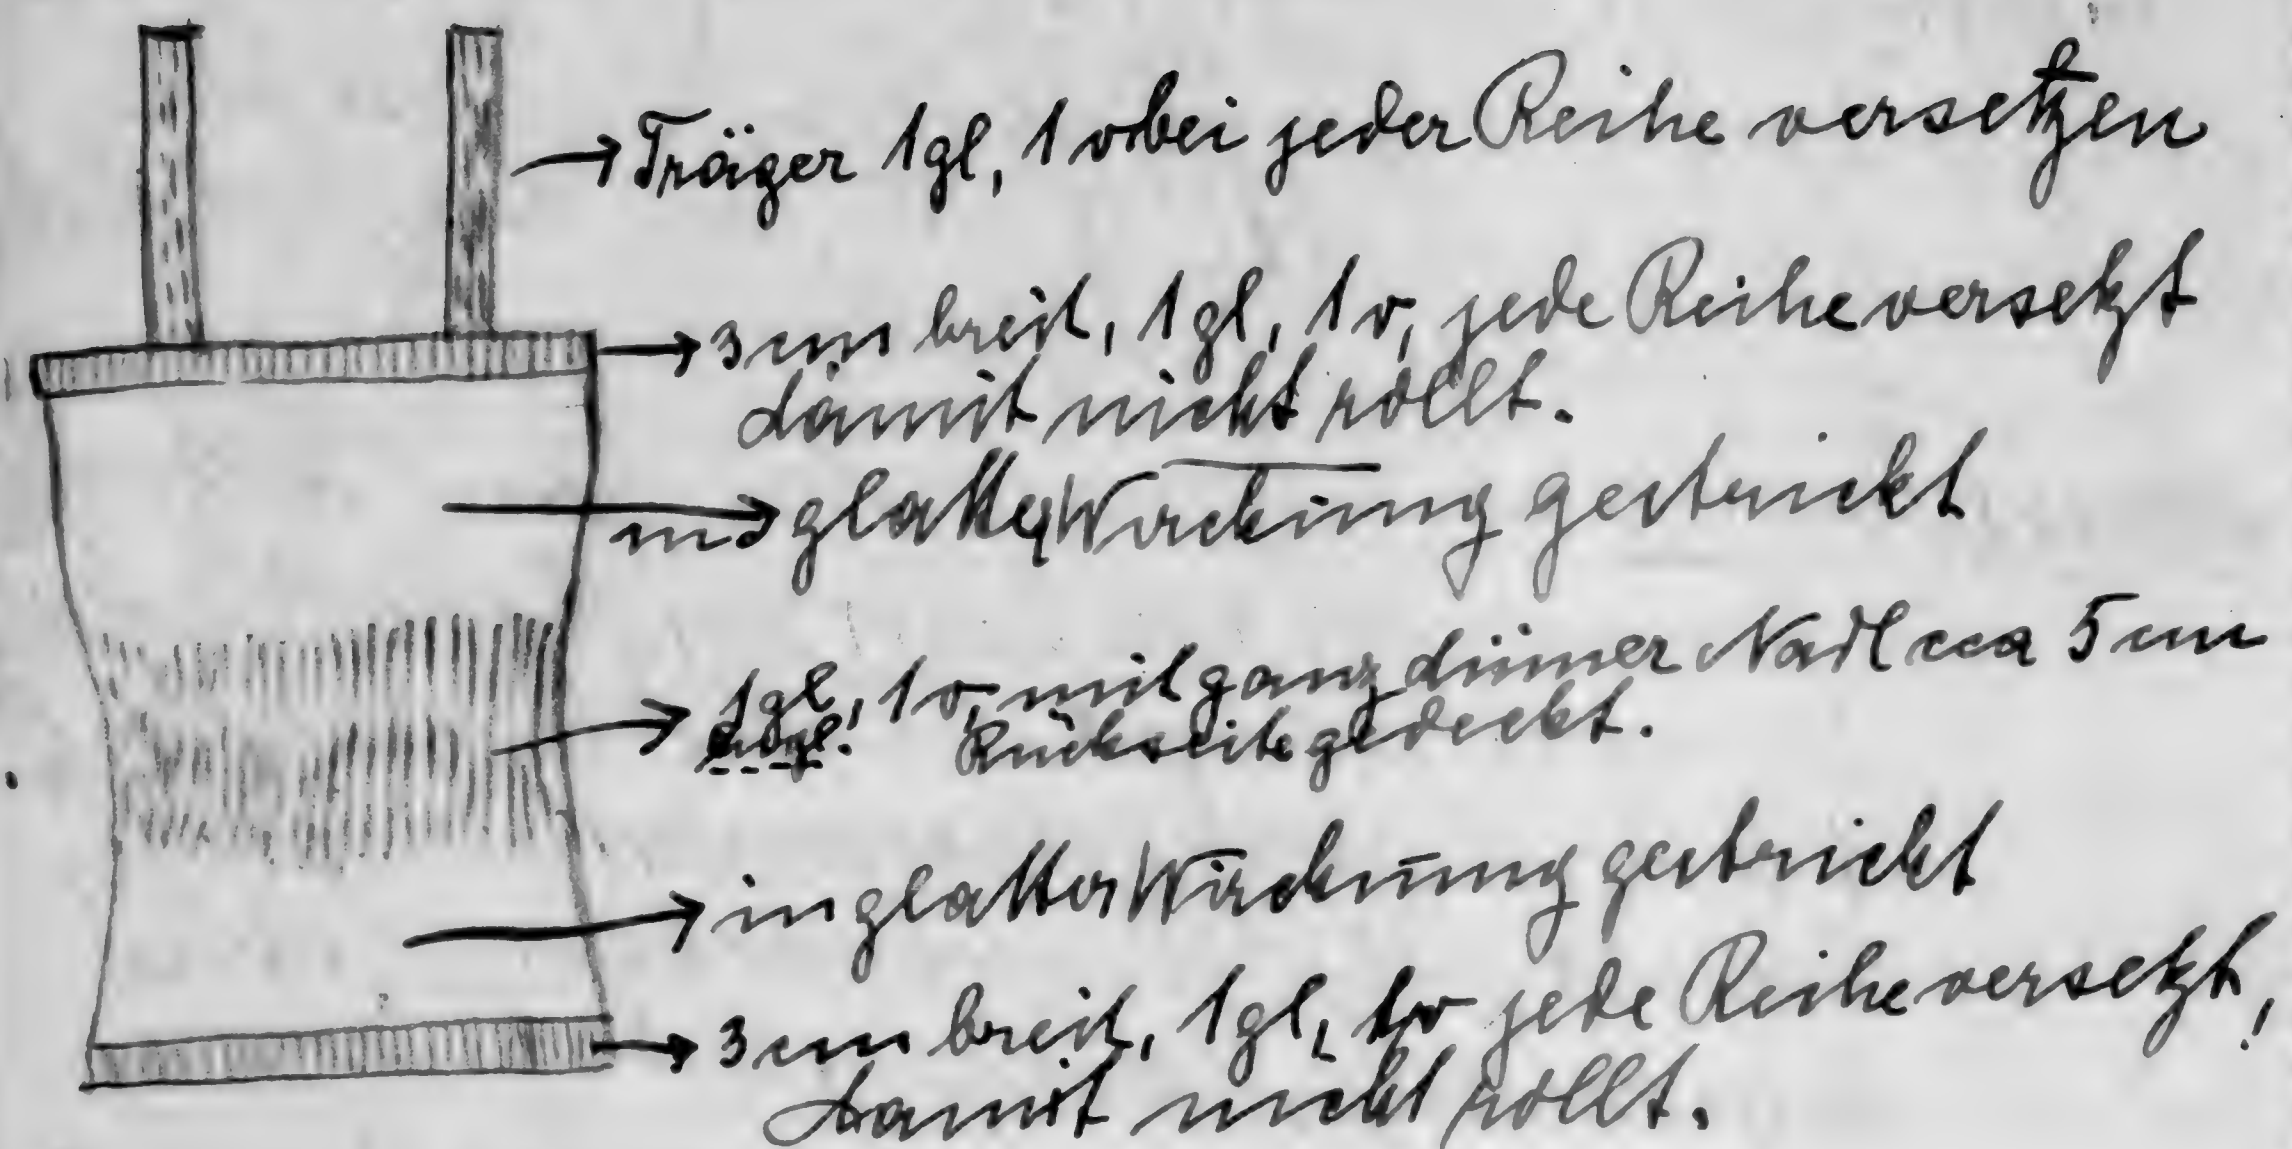 Träger 1gl, 1v bei jeder Reihe versetzen
3 cm breit, 1gl, 1v, jede Reihe versetzt
damit nicht rollt.
in glatter Wirckung gestrickt
1gl, 1v, mit ganz dünner Nadl cca 5 cm
Rückseite gedeckt.
in glatter Wirckung gestrickt
3 cm breit, 1gl, 1v jede Reihe versetzt,
damit nicht rollt.